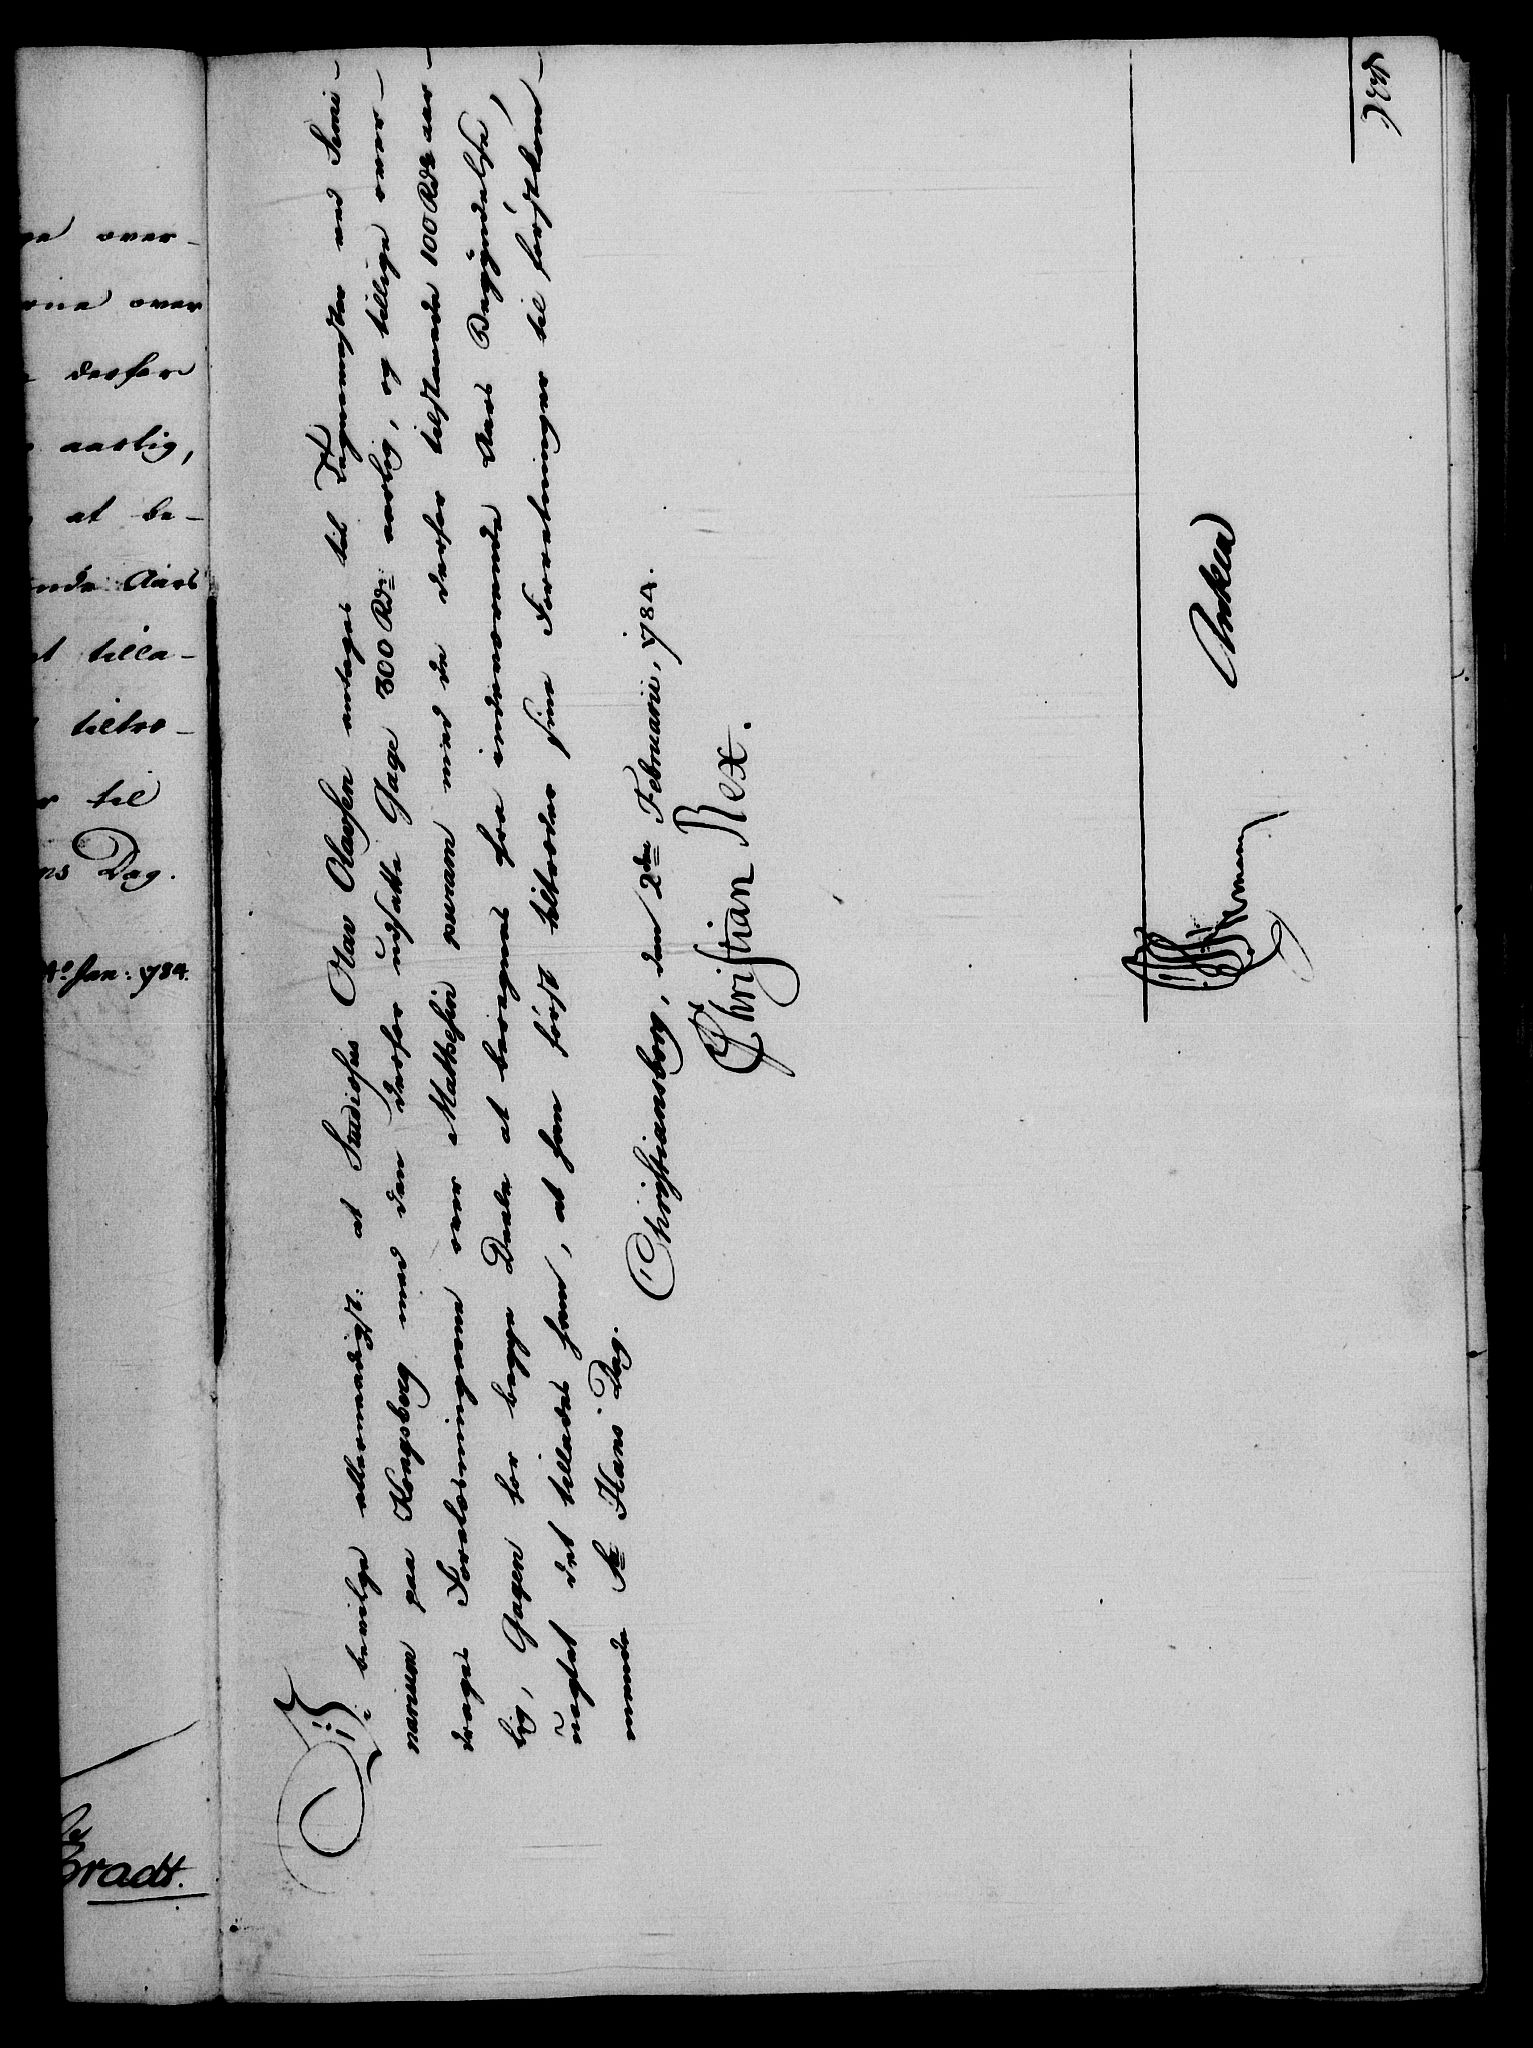 Vi bevilge allernaadigst: at Studiosus Olav Olavsen antages til Tegnemester ved Semi-
narium paa Kongsberg med den derfor udsatte Gage 300 Rdr aarlig, og tillige over-
drages Forelæsningerne over Mathesin puram med de derfor tilstaaede 100 Rdr aar-
lig, Gagen for begge Deele at beregnes fra indeværende Aars Begyndelse,
uagtet det tillades ham, at han først tiltræder sine Forretninger til førstkom-
mende St Hans Dag.
Christiansborg, den 2den Februarii, 1784.
Christian Rex.
over-
over
derfor
aarlig,
at be-
Aars
tilla-
tiltræ-
til
Dag.
Jan: 1784.
Bradt.